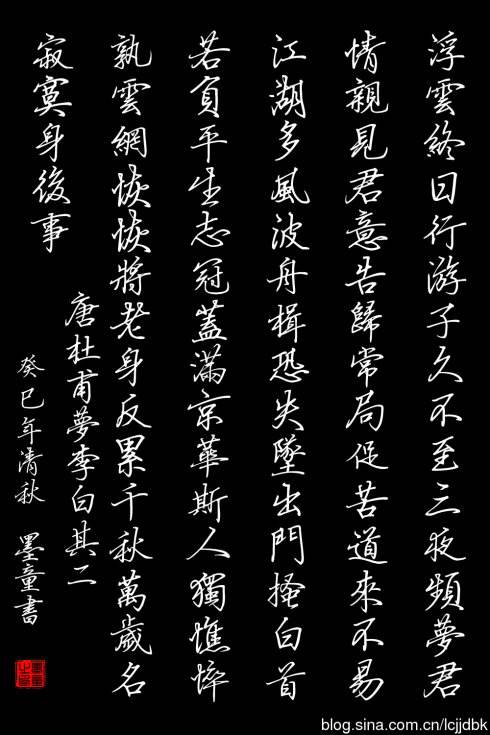 浮雲終日行游子久不至三夜頻夢君
情親見君意告歸常局促苦道來不易
江湖多風波舟楫恐失墜出門搔白首
若負平生志冠蓋滿京華斯人獨憔悴
孰雲網恢恢將老身反累千秋萬歲名
寂寞身後事
唐杜甫夢李白其二
癸巳年清秋 墨童書
blog.sina.com.cn/lcjjdbk